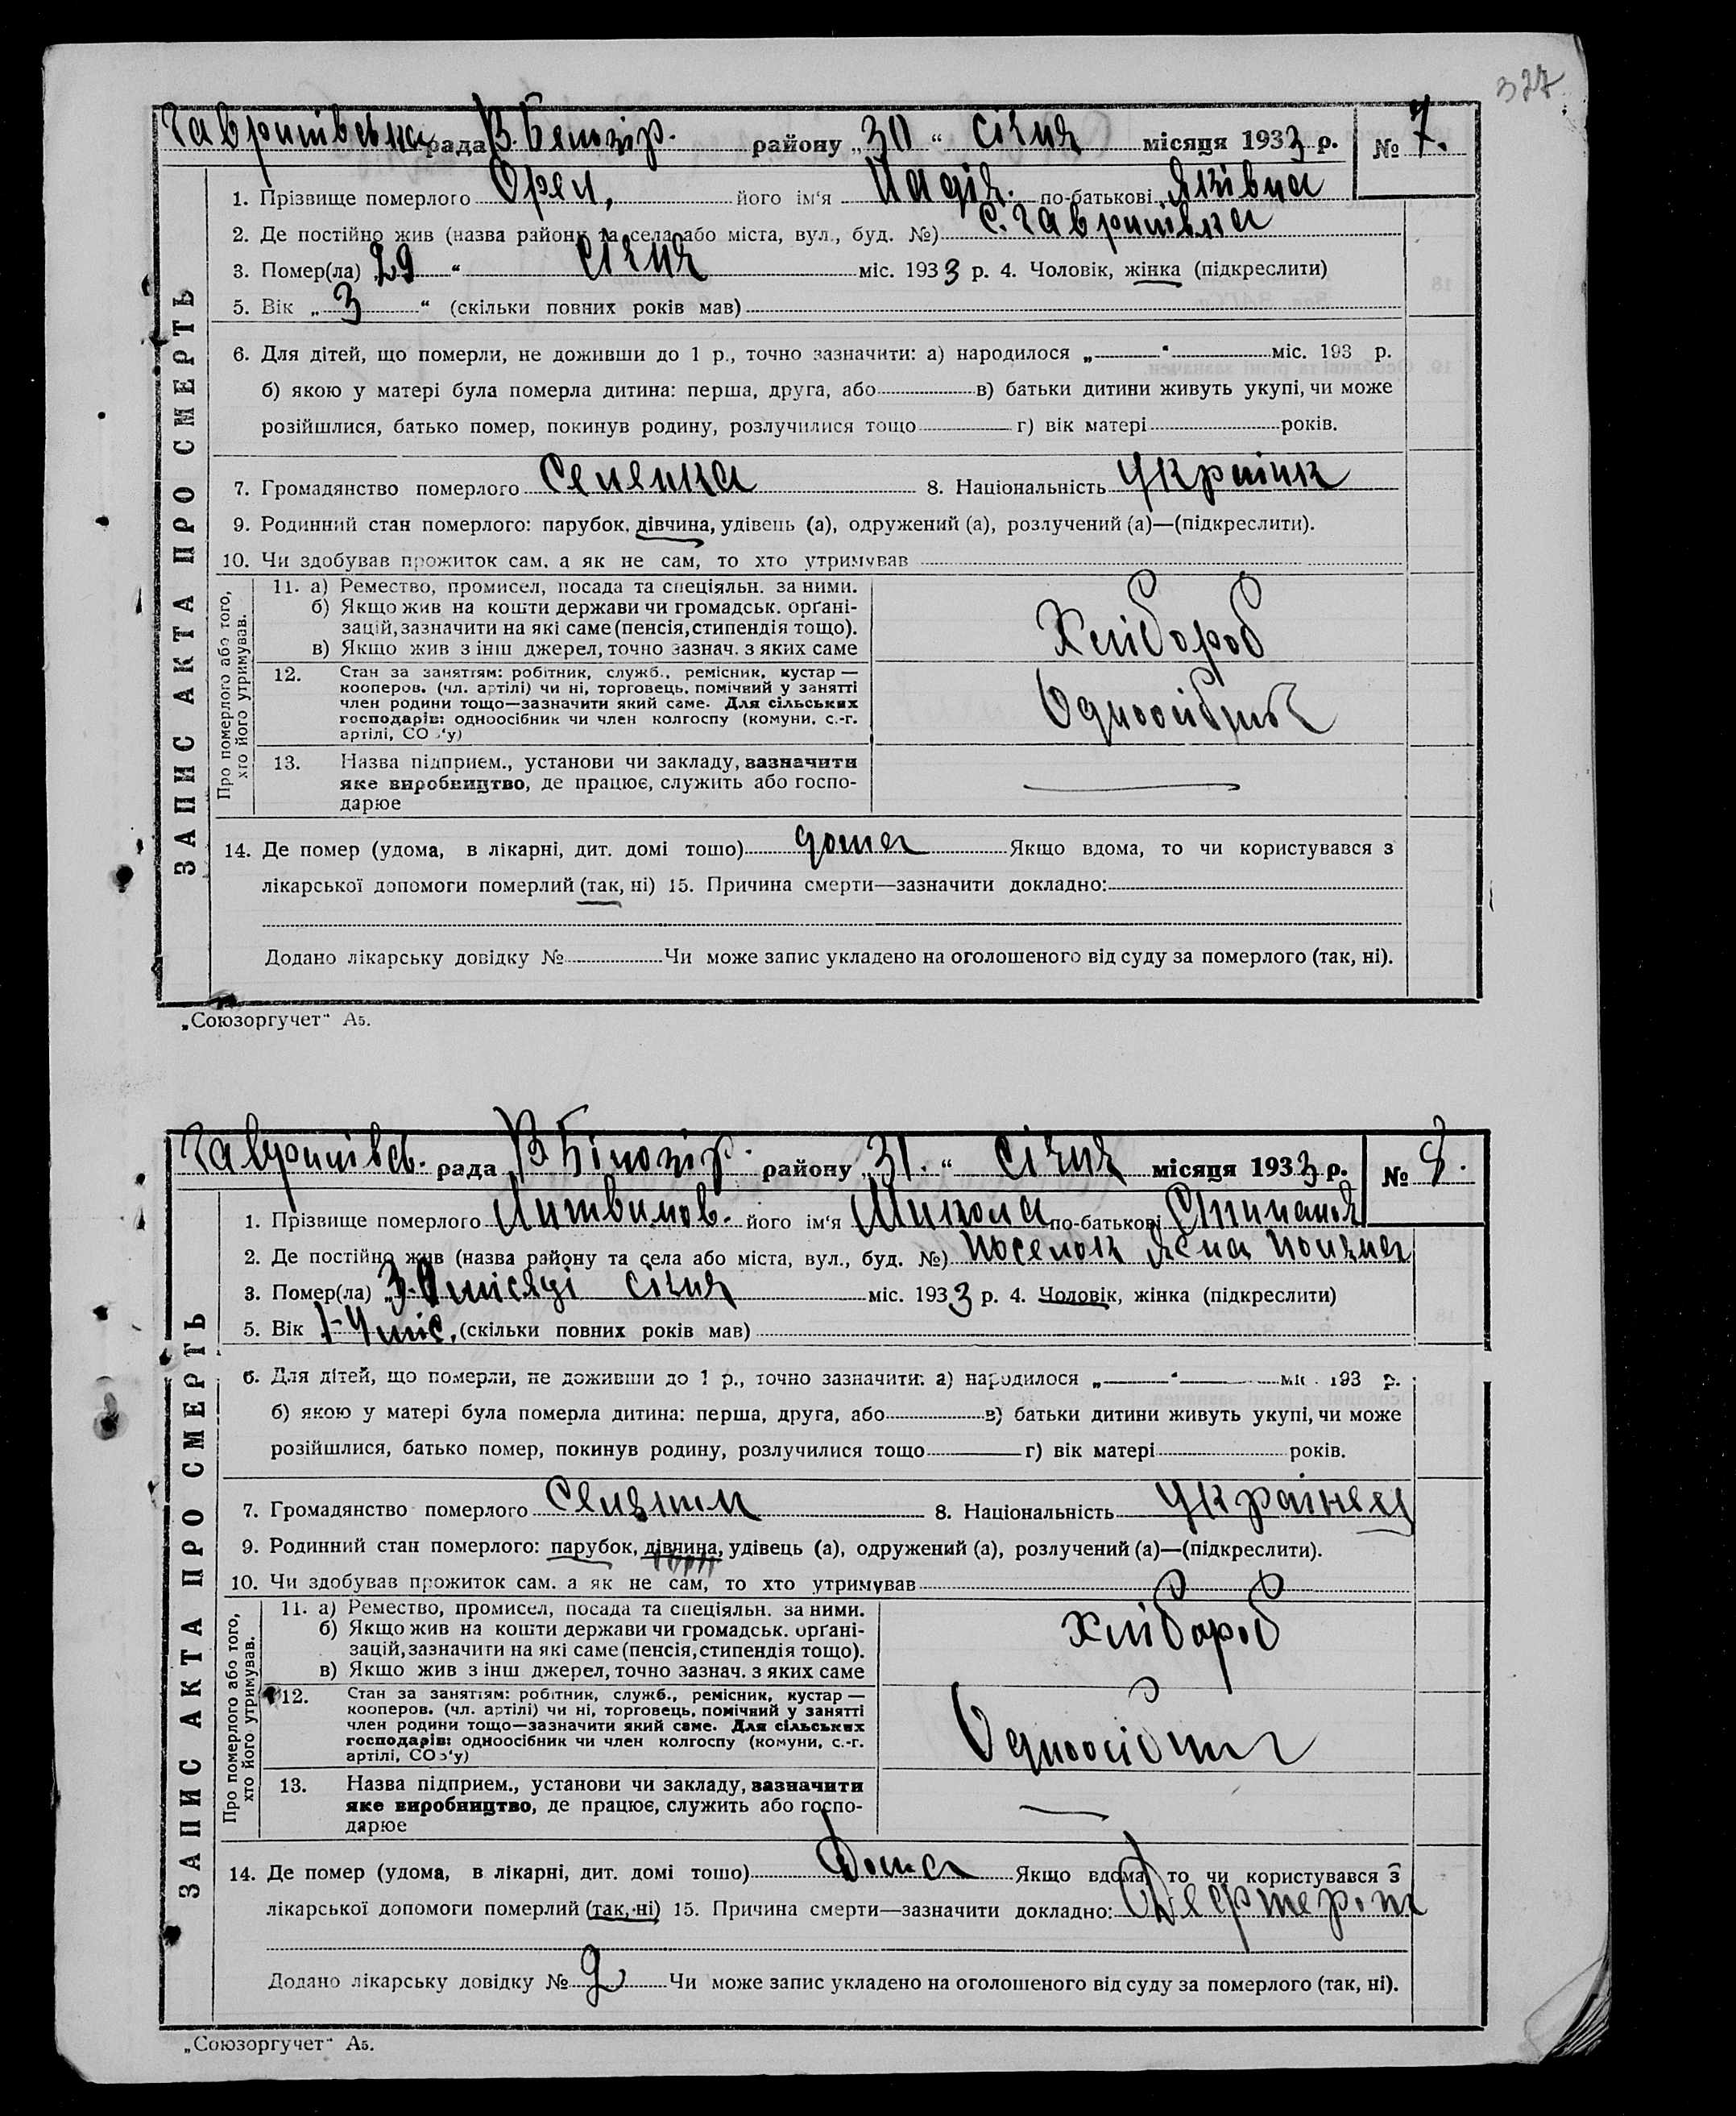 327
Гавришівська рада В. Білозір. району „30“ січня місяця 1933 р. № 7.
ЗАПИС АКТА ПРО СМЕРТЬ
1. Прізвище померлого Орел, його ім'я Надія. по-батькові Яківна
2. Де постійно жив (назва району та села або міста, вул., буд. №) с. Гавришівка
3. Помер(ла) „29“ січня міс. 1933 р. 4. Чоловік, жінка (підкреслити)
5. Вік „3“ (скільки повних років мав)
6. Для дітей, що померли, не доживши до 1 р., точно зазначити: а) народилося „ “ міс. 193 р.
б) якою у матері була померла дитина: перша, друга, або в) батьки дитини живуть укупі, чи може
розійшлися, батько помер, покинув родину, розлучилися тощо г) вік матері років.
7. Громадянство померлого Селянка 8. Національність
9. Родинний стан померлого: парубок, дівчина, удівець (а), одружений (а), розлучений (а)—(підкреслити).
10. Чи здобував прожиток сам, а як не сам, то хто утримував
Про померлого або того, хто його утримував.
11. а) Ремество, промисел, посада та спеціяльн. за ними.
б) Якщо жив на кошти держави чи громадськ. орґані-
зацій, зазначити на які саме (пенсія, стипендія тощо).
в) Якщо жив з інш джерел, точно зазнач. з яких саме
Хлібороб
12. Стан за заняттям: робітник, служб., ремісник, кустар —
кооперов. (чл. артілі) чи ні, торговець, помічний у занятті
член родини тощо—зазначити який саме. Для сільських
господарів: одноосібник чи член колгоспу (комуни, с.-г.
артілі, СОЗ'у)
Одноосібник
13. Назва підприєм., установи чи закладу, зазначити
яке виробництво, де працює, служить або госпо-
дарює
14. Де помер (удома, в лікарні, дит. домі тощо) дома Якщо вдома, то чи користувався з
лікарської допомоги померлий (так, ні) 15. Причина смерти—зазначити докладно:
Додано лікарську довідку № Чи може запис укладено на оголошеного від суду за померлого (так, ні).
„Союзоргучет“ А5.
Гавришівсь. рада В Білозір. району „31.“ січня місяця 1933 р. № 8.
ЗАПИС АКТА ПРО СМЕРТЬ
1. Прізвище померлого Литвинов. його ім'я Микола по-батькові
2. Де постійно жив (назва району та села або міста, вул., буд. №) поселок Ясна Поляна
3. Помер(ла) січня міс. 1933 р. 4. Чоловік, жінка (підкреслити)
5. Вік 1-4 міс. (скільки повних років мав)
6. Для дітей, що померли, не доживши до 1 р., точно зазначити: а) народилося „ “ міс. 193 р.
б) якою у матері була померла дитина: перша, друга, або в) батьки дитини живуть укупі, чи може
розійшлися, батько помер, покинув родину, розлучилися тощо г) вік матері років.
7. Громадянство померлого Селянин 8. Національність Українец
9. Родинний стан померлого: парубок, дівчина, удівець (а), одружений (а), розлучений (а)—(підкреслити).
10. Чи здобував прожиток сам, а як не сам, то хто утримував
Про померлого або того, хто його утримував.
11. а) Ремество, промисел, посада та спеціяльн. за ними.
б) Якщо жив на кошти держави чи громадськ. орґані-
зацій, зазначити на які саме (пенсія, стипендія тощо).
в) Якщо жив з інш джерел, точно зазнач. з яких саме
Хлібороб
12. Стан за заняттям: робітник, служб., ремісник, кустар —
кооперов. (чл. артілі) чи ні, торговець, помічний у занятті
член родини тощо—зазначити який саме. Для сільських
господарів: одноосібник чи член колгоспу (комуни, с.-г.
артілі, СОЗ'у)
Одноосібник
13. Назва підприєм., установи чи закладу, зазначити
яке виробництво, де працює, служить або госпо-
дарює
14. Де помер (удома, в лікарні, дит. домі тощо) Дома Якщо вдома, то чи користувався з
лікарської допомоги померлий (так, ні) 15. Причина смерти—зазначити докладно:
Додано лікарську довідку № 2 Чи може запис укладено на оголошеного від суду за померлого (так, ні).
„Союзоргучет“ А5.